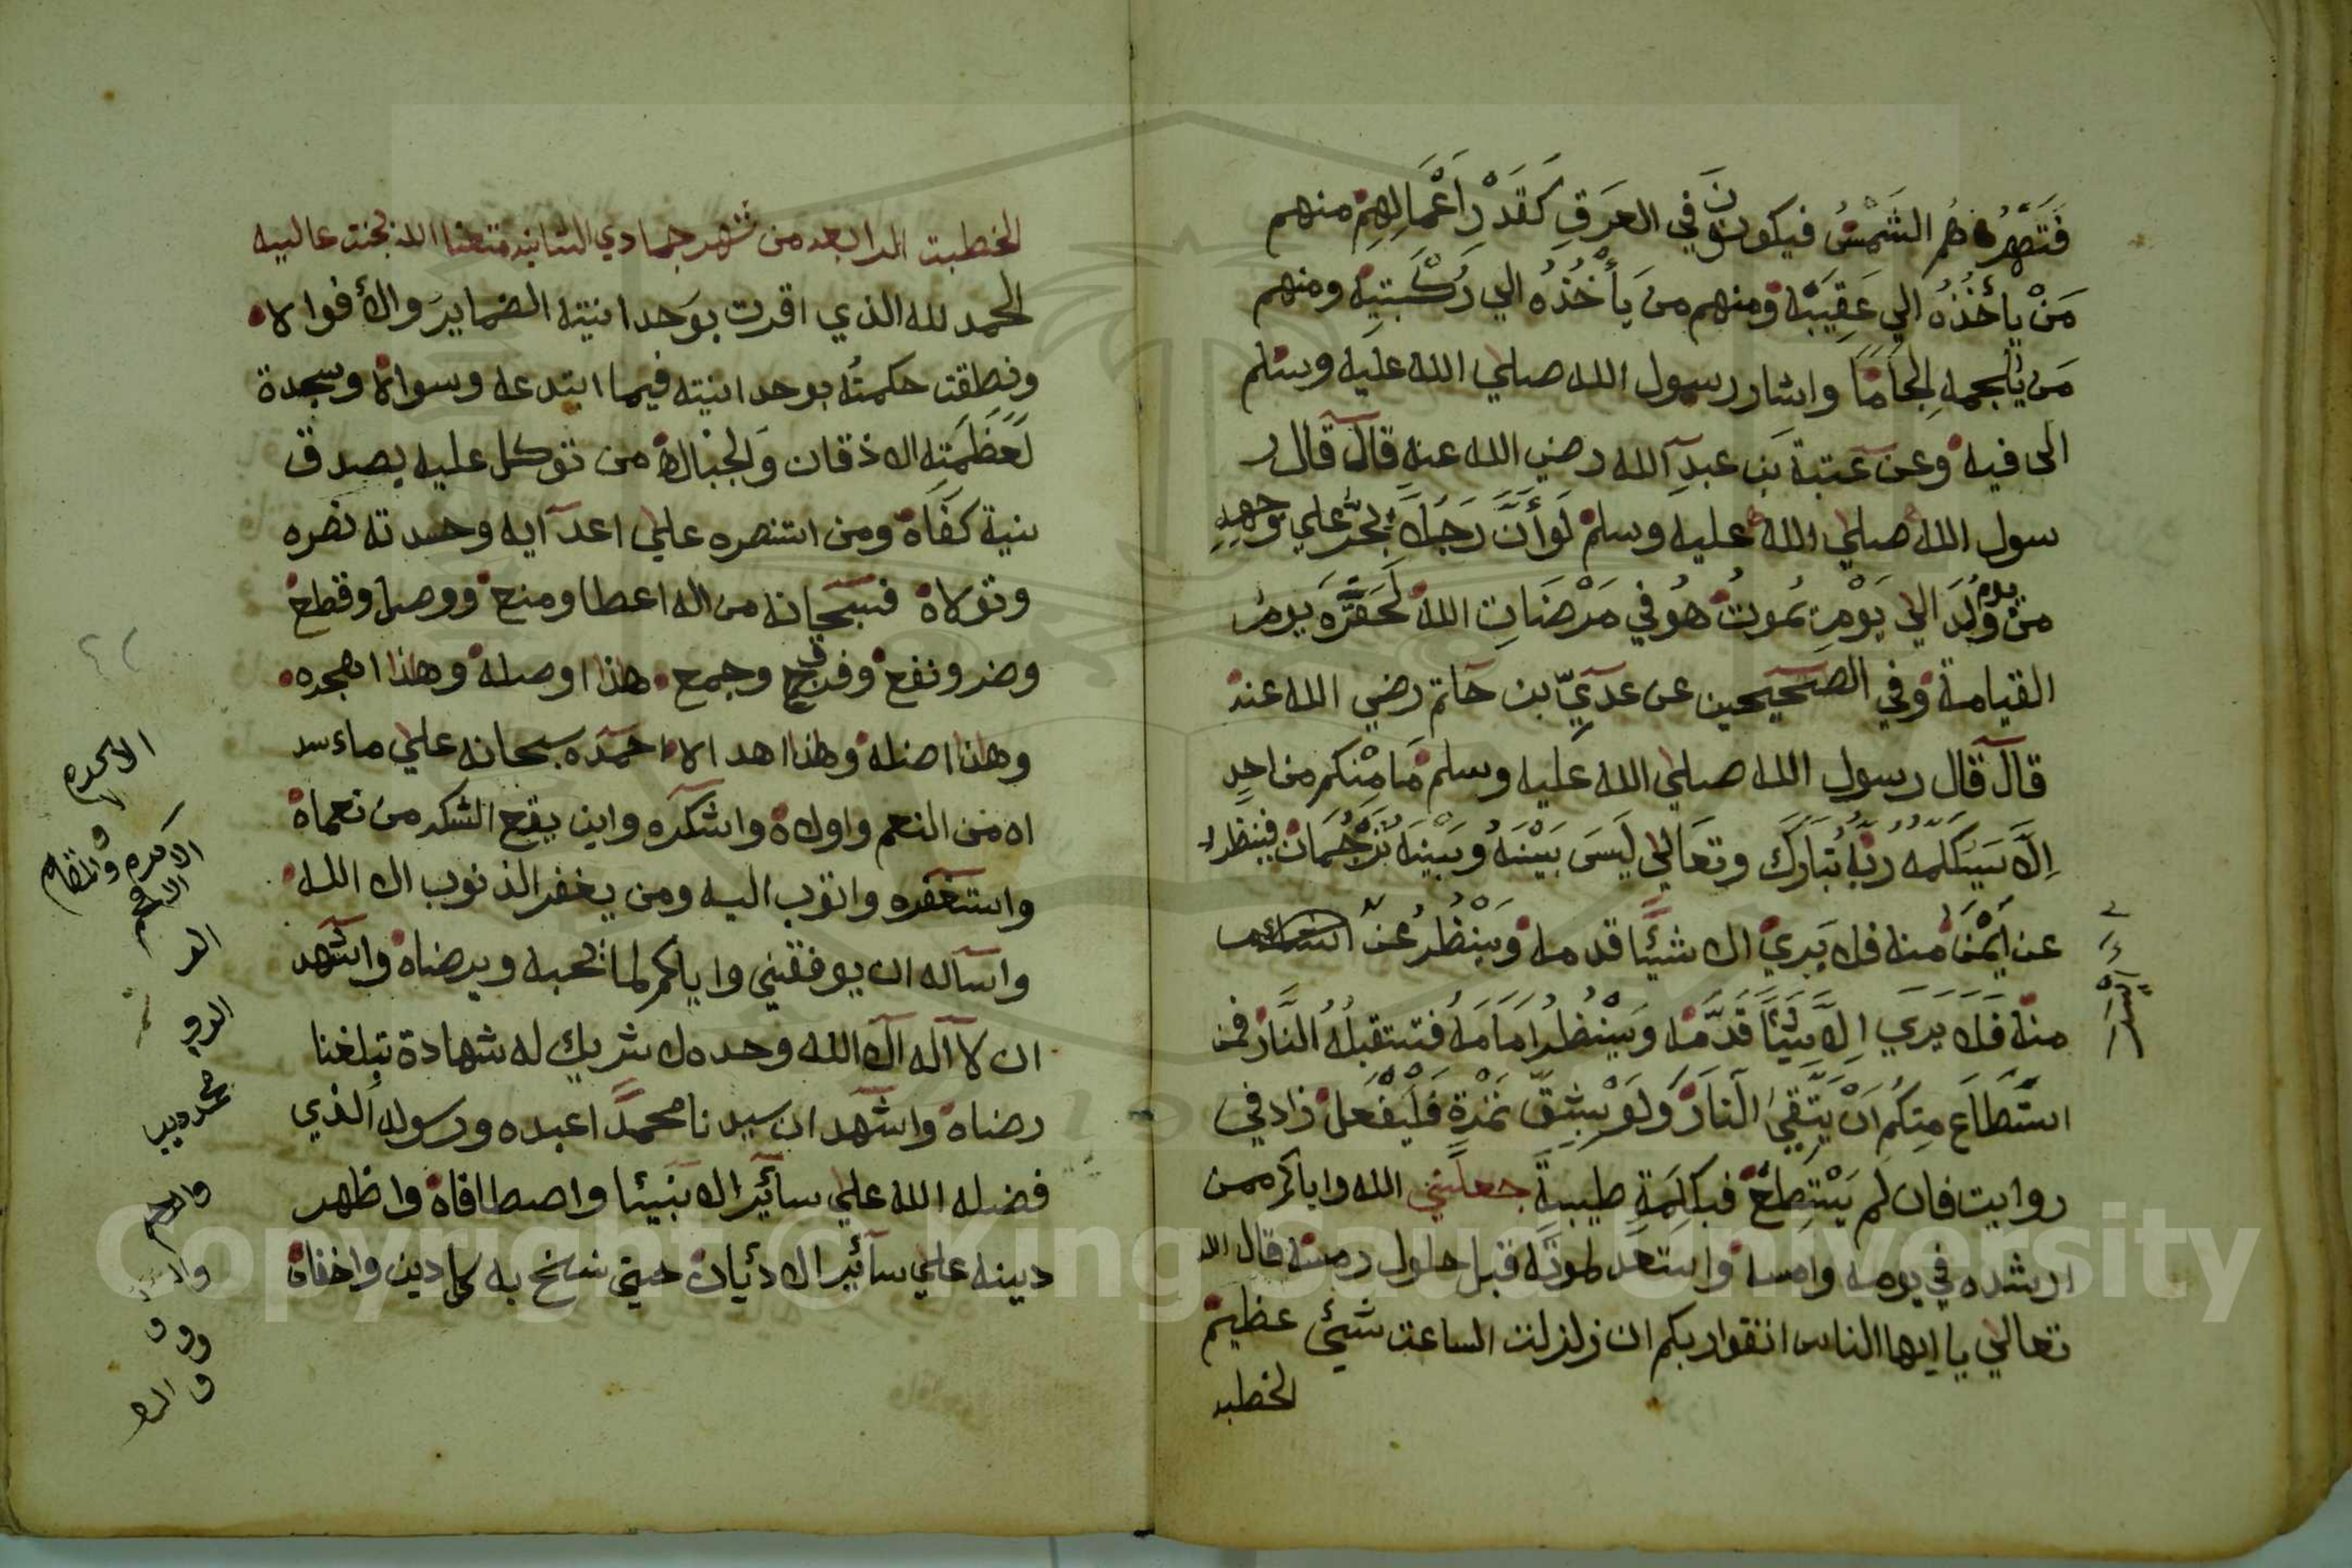 فَتَصْهَرُهُم الشَمْسُ فيكونونَ في العرَقِ كَقَدْرِ اَعْمَالِهِمْ منهم
مَنْ يأخُذُهُ الي عَقِيبَه ومنهم من يَأخُذُه الي رُكْبتيِه ومنهم
مَن يُلجمه لِجَامًا واشار رسول الله صلي الله عليه وسلم
الى فيه وعن عتبة بن عبد الله رضي الله عنه قال قال ر
سول الله صلي الله عليه وسلم لَوأنَّ رَجُلاً يجرُّ علي وجهِهِ
من يوم وُلِدَ الي يَوْمِ يَموتُ هُو في مَرْضَاتِ الله لَحَقَّرَه يوم
القيامة وفي الصحيحين عن عديّ بن حاتم رضي الله عنه
قال قال رسول الله صلي الله عليه وسلم مَا مِنْكم من احدٍ
اِلَّا سَيُكَلِّمه رَبُّه تبَارَك وتعَالي ليَسَ بَيْنَهُ وبَيْنَهُ تَرْجُمَان فينظر
عن اَيْمَنَ منه فلا يَريَ الا شيئًا قدمه وَيَنْظُرُ عَنْ
منه فَلاَ يرَي اِلاَّ شَيْئًا قَدَّمَه ويَنْظُر اَمَامَهُ فتستقبلُهُ النَّار فمن
استَطَاعَ مِنكُم اَنْ يَتَّقِيَ النَارَ وَلَوْ بِشِقِّ تَمْرَةٍ فَلْيَفْعَلْ زاد في
روايت فان لم يَسْتَطِعْ فبكلِمَةٍ طيبةٍ جعلني الله واياكم ممن
ارشده في يومه وامسه واستعد لموته قبل حلول رمسه قال الله
تعالي يا ايها الناس اتقوا ربكم ان زلزلت الساعت شيئ عظيم
الخطبه
الخطبت الرابعه من شهر جمادي الثانيه متعنا الله بجنت عاليه
الحمد لله الذي اقرت بوَحدانيته الضمايرَ والأفواه
ونطقت حكمتُه بوحدانيته فيما ابتدعه وسواه وسجدة
لعَظَمَتِه الاذقان وَالجباه من توكل عليه بصدق
نية كفَاه ومن استنصره علي اعدآيه وحسدته نصره
وتولاه فسبحانه من اله اعطا ومنع ووصل وقطع
وضر ونفع وفرق وجمع هذا اوصله وهذا اهجره
وهذا اضله وهذا اهداه احمده سبحانه علي ماء سد
اه من النعم واولاه واشكره واين يقع الشكر من نعماه
واستغفره واتوب اليه ومن يغفر الذنوب الا الله
واسآله ان يوفقني واياكم لما يحبه ويرضاه واشهد
ان لآ آله الا الله وحده لا شريك له شهادة تبلغنا
رضاه واشهد ان سيدنا محمدًا عبده ورسوله الذي
فضله الله علي سآئير الانبيئا واصطافاه واظهر
دينه علي سآئير الادئيان حتي نسخ به كل دين واخفاه